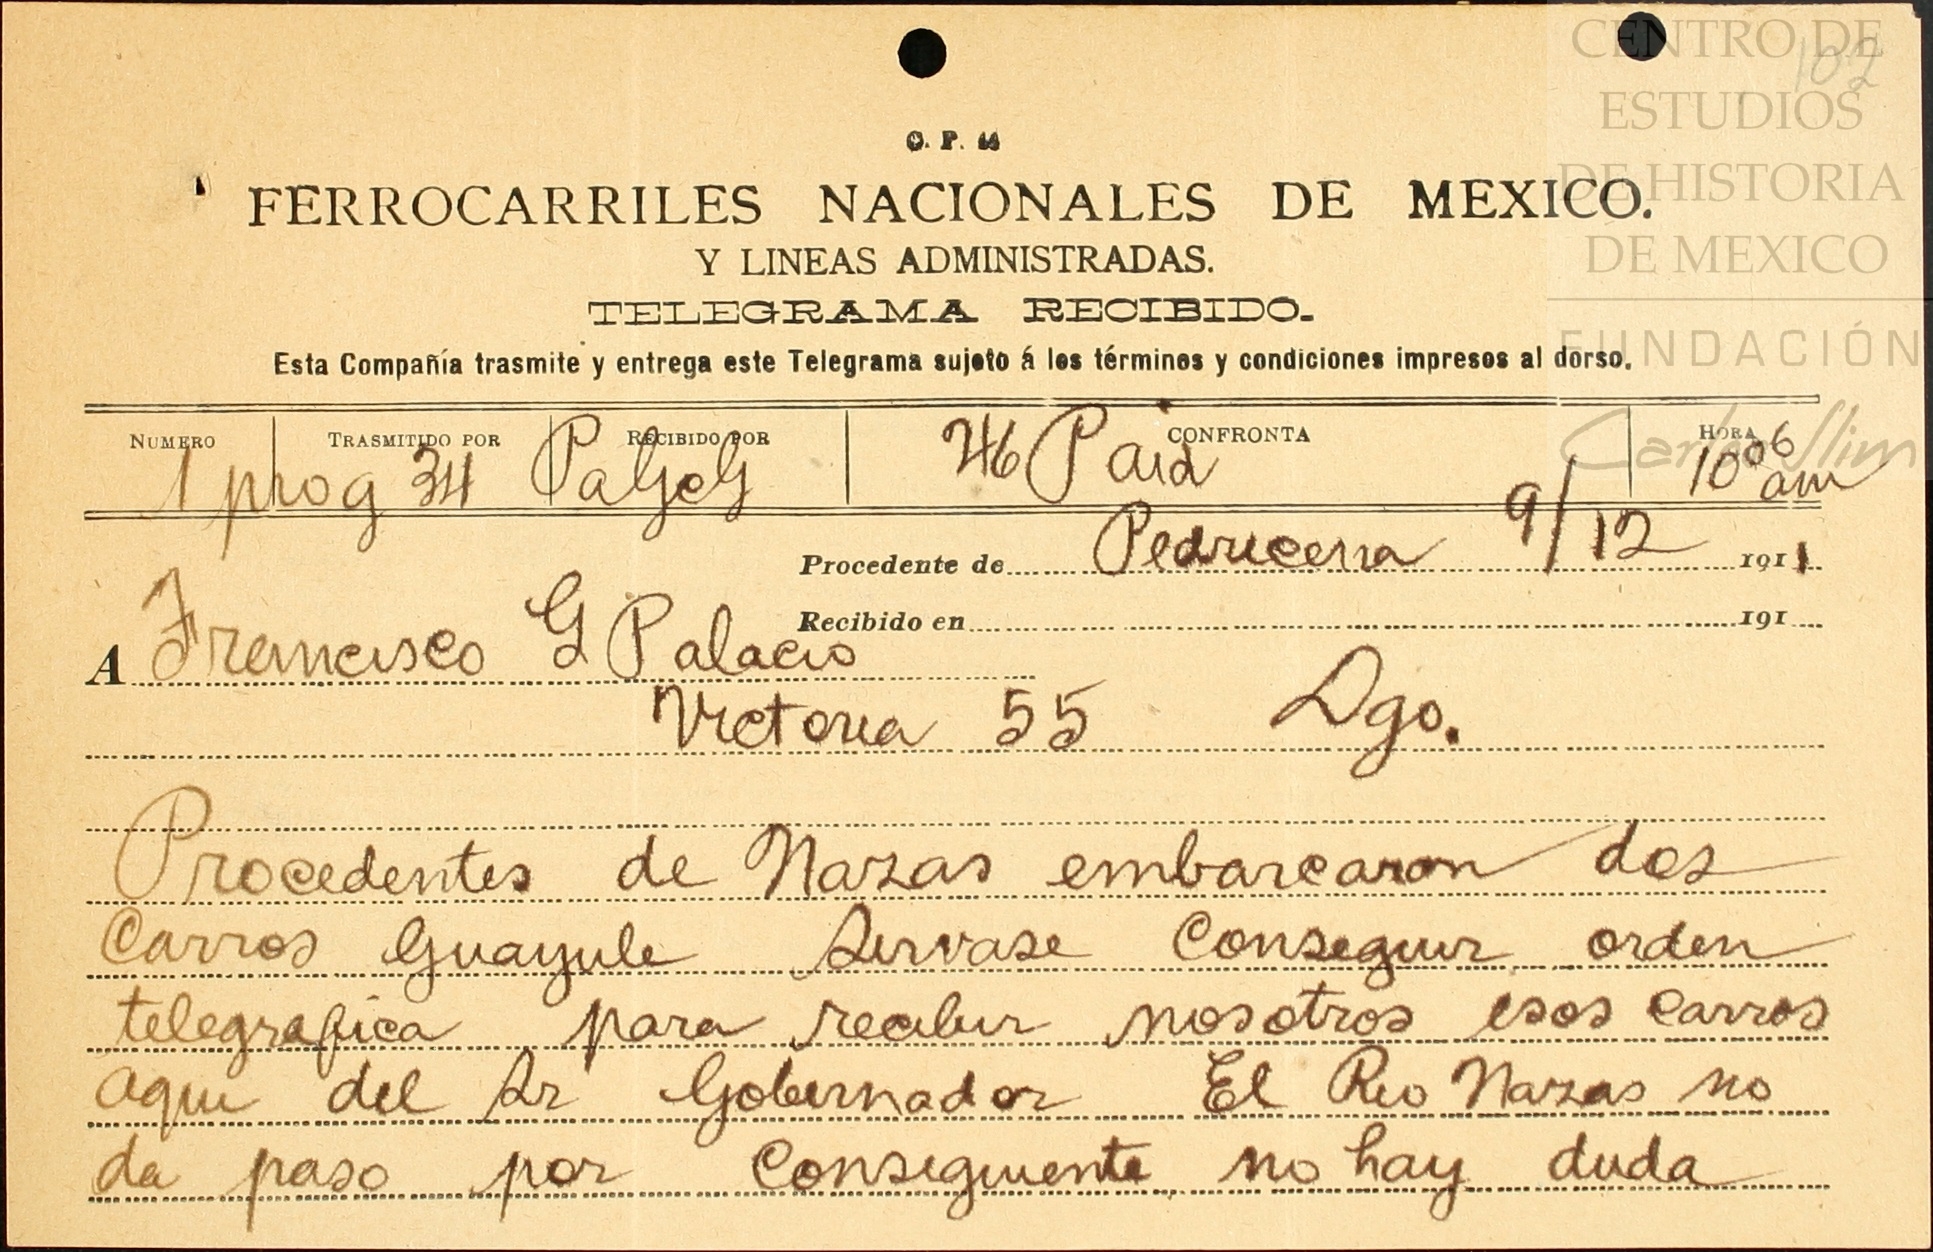 102
CENTRO DE
ESTUDIOS
DE HISTORIA
DE MEXICO
FUNDACIÓN
Carlos Slim
FERROCARRILES NACIONALES DE MEXICO.
Y LINEAS ADMINISTRADAS.
TELEGRAMA RECIBIDO.
Esta Compañía trasmite y entrega este Telegrama sujeto á los términos y condiciones impresos al dorso.
NUMERO TRASMITIDO POR RECIBIDO POR CONFRONTA HORA
1 prog 34 46 Paid 10 06 am
Procedente de Pedricena 9/12 1911
Recibido en 191
A Francisco G Palacio
Victoria 55 Dgo.
Procedentes de Nazas embarcaron dos
Carros Guayule Sirvase Conseguir orden
telegrafica para recibir nosotros esos carros
aqui del Sr Gobernador El Rio Nazas no
da paso por Consiguiente no hay duda